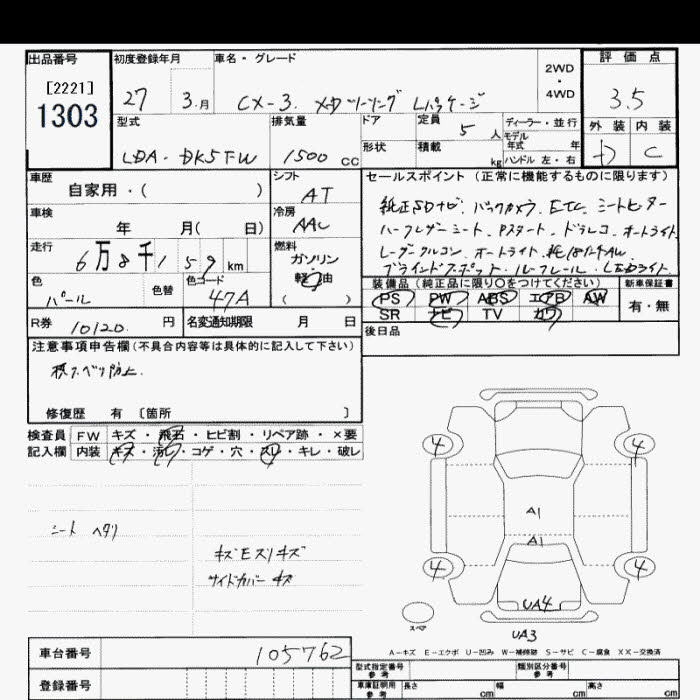 出品番号
[2221]
1303
初度登録年月
27 3.月
車名・グレード
CX-3. XDツーリング Lパッケージ
2WD
・
4WD
評価点
3.5
外装 内装
C
型式
LDA-DK5FW
排気量
1500 CC
ドア
形状
定員 5 人
積載 kg
ディーラー・並行
モデル年式 年
ハンドル 左・右
車歴
自家用・( )
シフト
AT
車検
年 月( 日)
冷房
AAC
走行
6万8千159km
燃料
ガソリン
軽油
( )
色
パール
色替
色コード
47A
R券 10120. 円
名変通知期限 月 日
セールスポイント(正常に機能するものに限ります)
純正SDナビ. バックカメラ. ETC. シートヒーター
ハーフレザーシート. Pスタート. ドラレコ. オートライト
レーダークルコン. オートライト. 純18インチAW.
ブラインドスポット. ルーフレール. LEDライト.
装備品(純正品に限り○をつけてください)
PS PW ABS エアB AW
SR ナビ TV カワ
新車保証書
有・無
後日品
注意事項申告欄(不具合内容等は具体的に記入して下さい)
横スベリ防止.
修復歴 有 〔箇所 〕
検査員 FW キズ・飛石・ヒビ割・リペア跡・×要
記入欄 内装 キズ・汚レ・コゲ・穴・スレ・キレ・破レ
シート ヘタリ
キズEスリキズ
サイドカバー キズ
4 4
A1
A1
4 4
UA4
スペア
UA3
A-キズ E-エクボ U-凹み W-補修跡 S-サビ C-腐食 XX-交換済
車台番号 105762
登録番号
型式指定番号 参考
類別区分番号 参考
車庫証明用 参考 長さ cm 幅 cm 高さ cm